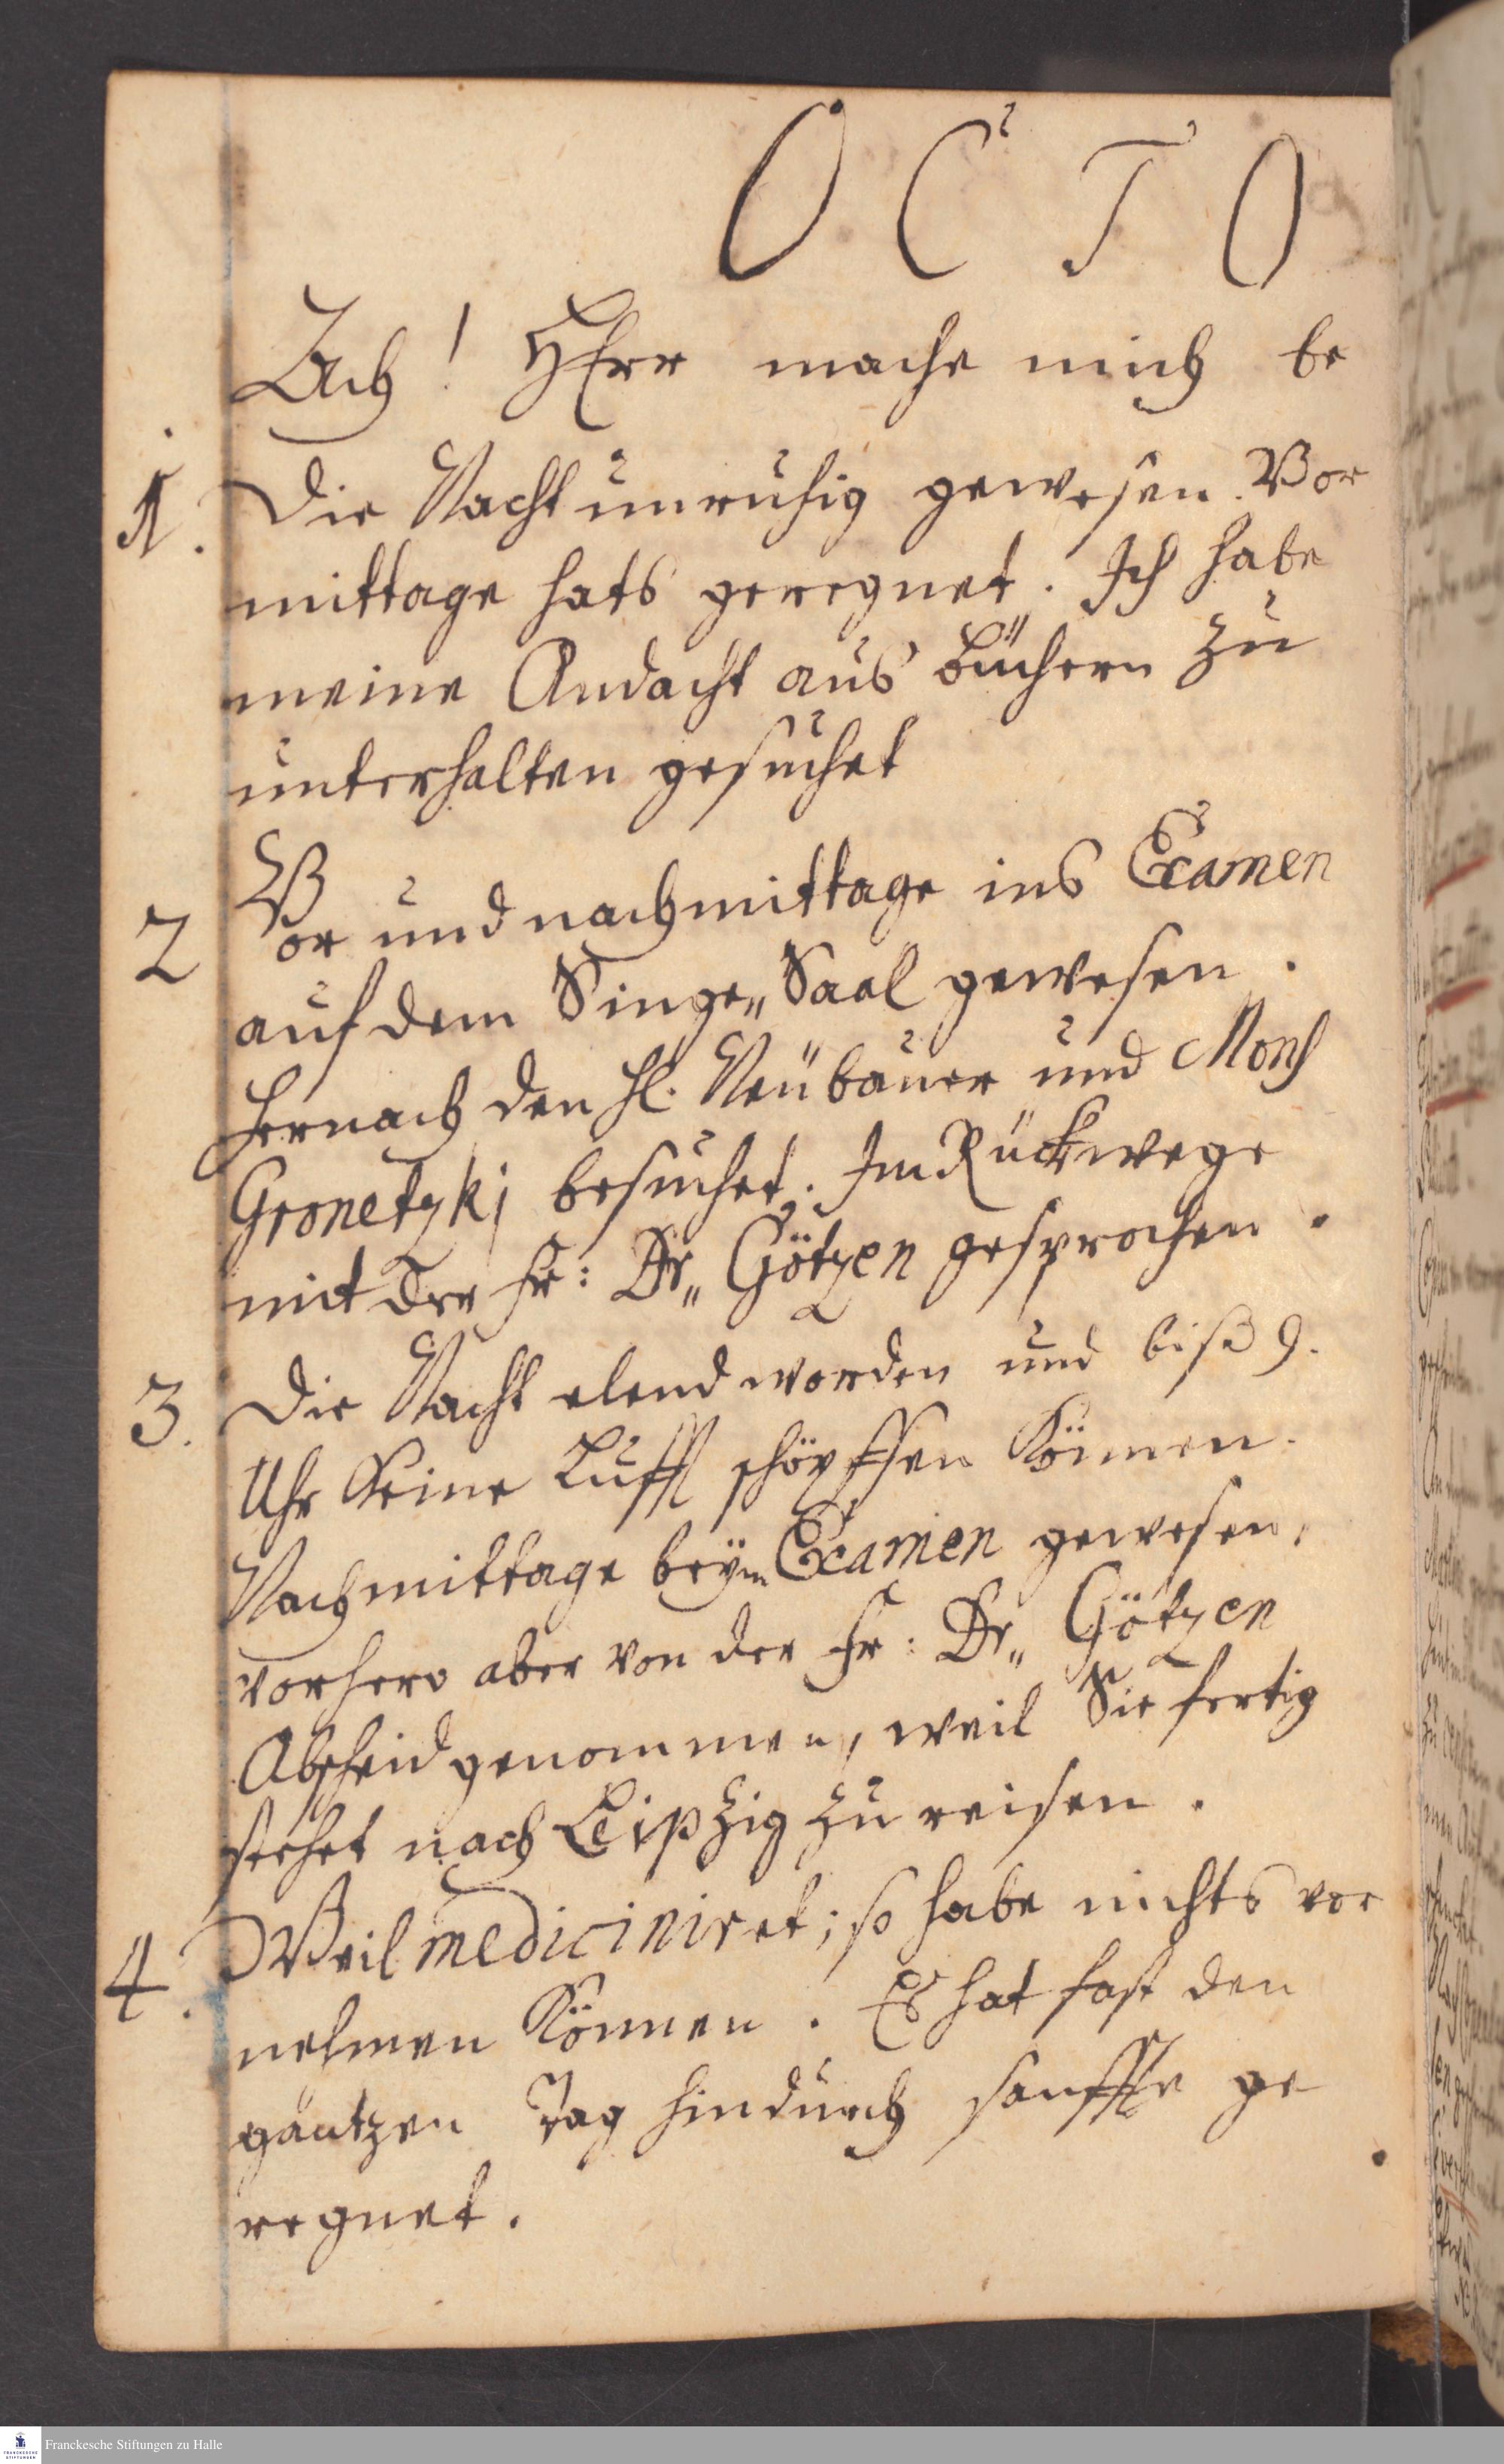 O C T O
Ach! HErr mache mich be
1. Die Nacht unruhig gewesen. Vor
mittage hats geregnet. Ich habe
meine Andacht aus büchern zu
unterhalten gesuchet
2 Vor und nachmittage ins Examen
auf dem Singe„Saal gewesen.
hernach den H. Neübauer und Mons
Gronetzki besuchet. Im Rückwege
mit der Fr: Dr„ Götzen gesprochen.
3. Die Nacht elend worden und biß 9.
Uhr keine Lufft schöpffen können.
Nachmittage beÿm Examen gewesen,
vorhero aber von der Fr: Dr„ Götzen
Abscheid genommen, weil Sie fertig
stehet nach Leipzig zu reisen.
4. Weil mediciniret; so habe nichts vor
nehmen können. Es hat fast den
gantzen Tag hindurch sanffte ge
regnet.
FRANCKESCHE STIFTUNGEN
Franckesche Stiftungen zu Halle